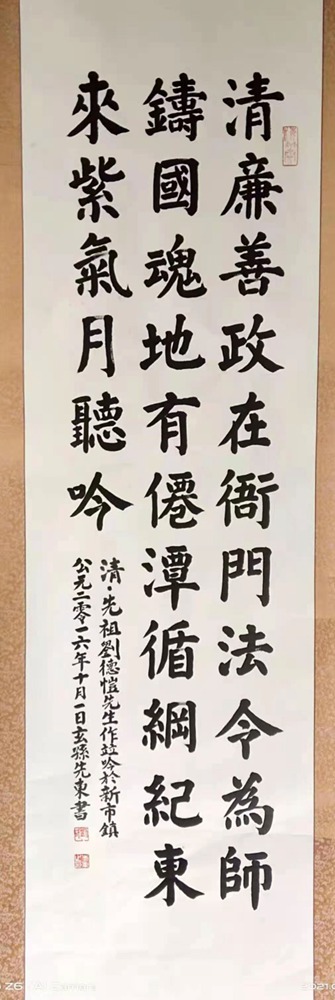 清廉善政在衙門法令為師
鑄國魂地有僊潭循綱紀東
來紫氣月聽吟
清·先祖劉德愷先生作竝吟於新市鎮
公元二零一六年十月一日玄孫先東書